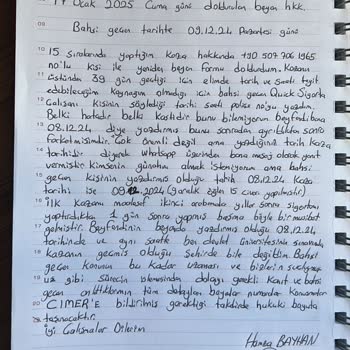 17 Ocak 2025 Cuma günü doldurulan beyan hkk.
09
Bahsi geçen tarihte 09.12.24 Pazartesi günü
10 15 Sıralarında yaptığım kaza hakkında +90 507 706 1965
no'lu kişi ile yeniden beyan formu doldurdum. Kazanın
11 üstünden 39 gün geçtiği için elimde tarih ve saati teyit
edebileceğim kaynağım olmadığı için bahsi geçen Quick Sigorta
12 Çalışanı kişinin söylediği tarihi saati police no'yu yazdım.
Belki hatadır belki kasıtlıdır bunu bilemiyorum beyfendi bana
13 08.12.24 diye yazdırmış bunu sonradan ayrıldıktan sonra
farketmişimdir. Çok önemli değil ama yazdığınız tarih kaza
14 tarihidir diyerek Whatsapp üzerinden bana mesaj olarak yanıt
vermiştir kimsenin günahını almak istemiyorum ama bahsi
15 geçen kişinin yazdırmış olduğu tarih 08.12.24 Kaza
tarihi ise 09.12.2024
16 İlk kazamı maalesef ikinci arabamda yıllar sonra sigortamı
yaptırdıktan 1 gün sonra yapmış başıma böyle bir musibet
17 gelmiştir. Beyfendinin beyanda yazdırmış olduğu 08.12.24
tarihinde ve aynı saatte ben devlet üniversitesinin sınavında
18 kazanın geçmiş olduğu şehirde bile değildim. Bahsi
geçen konunun bu kadar uzaması ve bizlerin
19 gibi sürecin işlemesinden dolayı gerekli kanıt ve bahsi
geçen tüm detayları beyanlar numaralar konuşmalar
20 CİMER'E bildirilmiş gerektiği takdirde hukuki boyuta
taşınacaktır.
İyi Çalışmalar Dilerim
Hamza BAYHAN